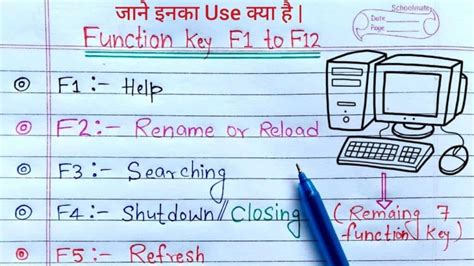 जाने इनका Use क्या है |
Schoolmate
Date
Page
Function key F1 to F12
F1 :- Help
F2 :- Rename or Reload
F3 :- Searching
F4 :- Shutdown // Closing
(Remaing 7
function key)
F5 :- Refresh